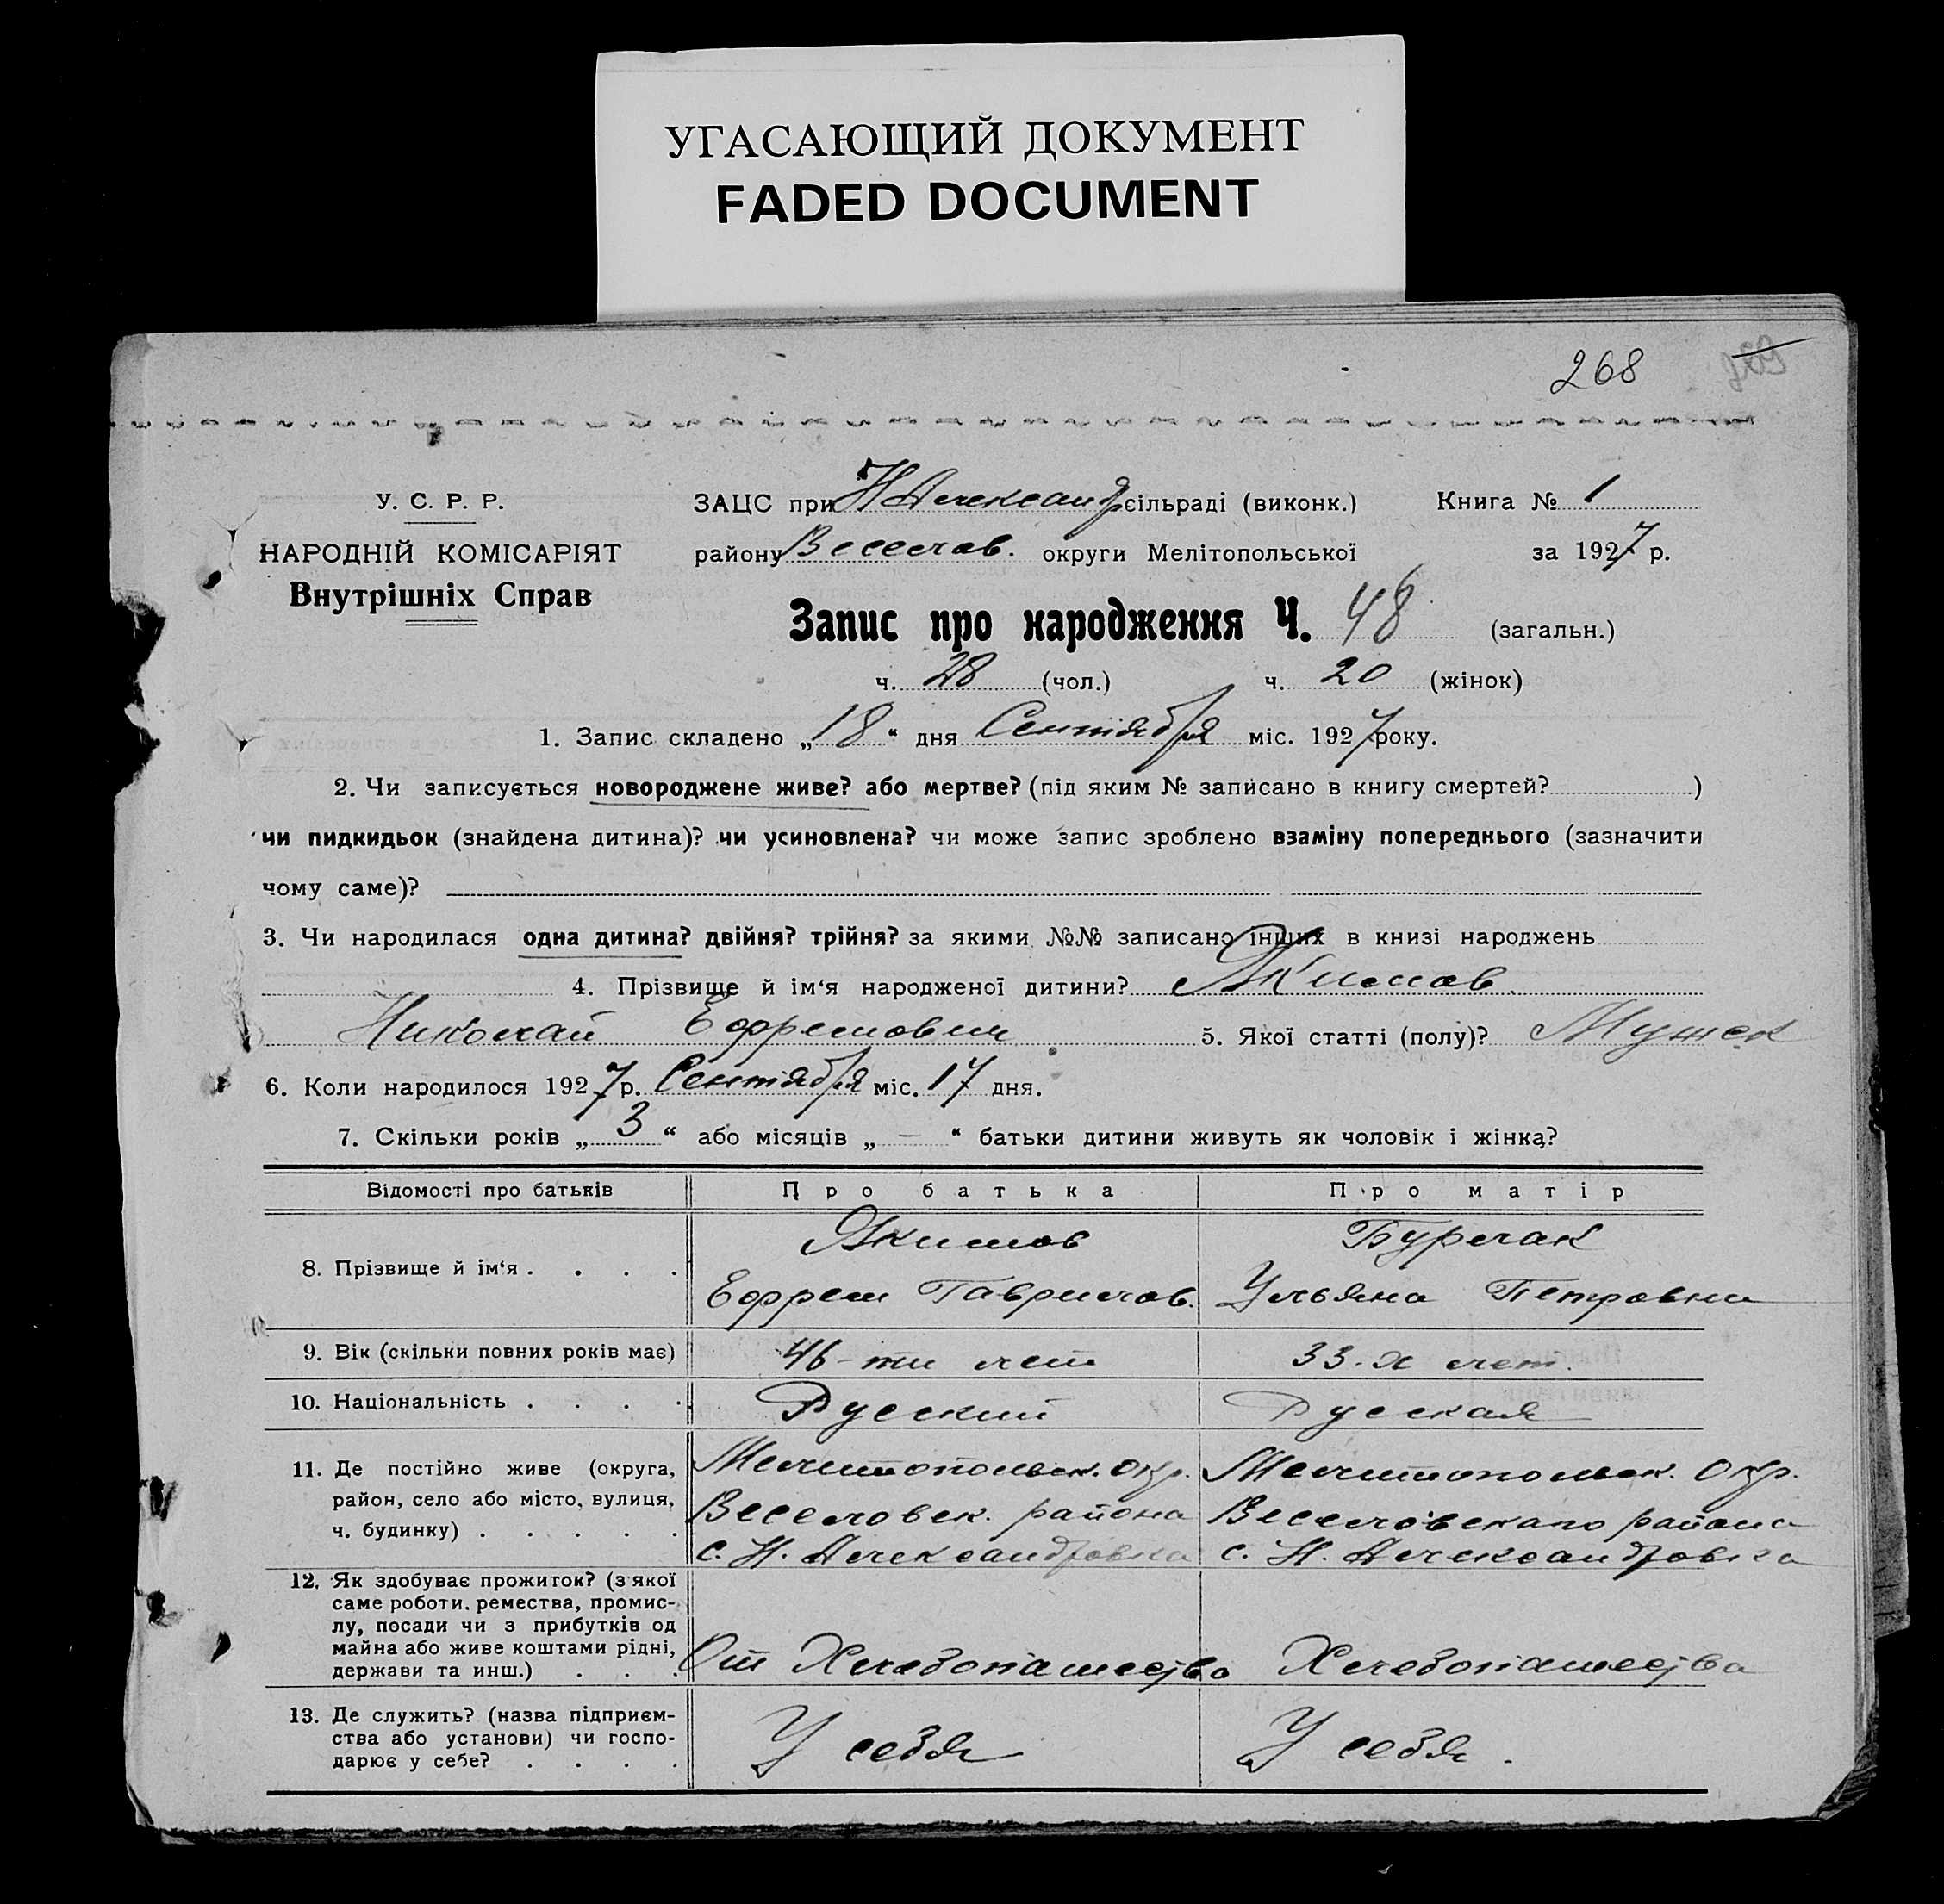 УГАСАЮЩИЙ ДОКУМЕНТ
FADED DOCUMENT
268
У. С. Р. Р.
НАРОДНІЙ КОМІСАРІЯТ
Внутрішніх Справ
ЗАЦС при Н Александр сільраді (виконк.) Книга № 1
району Веселов. округи Мелітопольської за 1927 р.
Запис про народження Ч. 48 (загальн.)
ч. 28 (чол.) ч. 20 (жінок)
1. Запис складено „18“ дня Сентября міс. 1927 року.
2. Чи записується новороджене живе? або мертве? (під яким № записано в книгу смертей? )
чи пидкидьок (знайдена дитина)? чи усиновлена? чи може запис зроблено взаміну попереднього (зазначити
чому саме)?
3. Чи народилася одна дитина? двійня? трійня? за якими №№ записано інших в книзі народжень
4. Прізвище й ім‘я народженої дитини? Якимов
Николай Ефремович 5. Якої статті (полу)? Мужск
6. Коли народилося 1927 р. Сентября міс. 17 дня.
7. Скільки років „ 3 “ або місяців „ – “ батьки дитини живуть як чоловік і жінка?
Відомості про батьків Про батька Про матір
8. Прізвище й ім‘я . . . . Якимов Ефрем Гаврилов. Бурлак Ульяна Петровна
9. Вік (скільки повних років має) 46-ти лет 33-х лет.
10. Національність . . . . Русский Русская
11. Де постійно живе (округа, Мелитопольск. Окр. Мелитопольск. Окр.
район, село або місто, вулиця, Веселовск. района Веселовскаго района
ч. будинку) . . . . . с. Н. Александровка с. Н. Александровка
12. Як здобуває прожиток? (з якої
саме роботи, ремества, промис-
лу, посади чи з прибутків од
майна або живе коштами рідні,
держави та инш.) . . . От Хлебопашества Хлебопашества
13. Де служить? (назва підприєм-
ства або установи) чи госпо-
дарює у себе? . . . . У себя У себя.